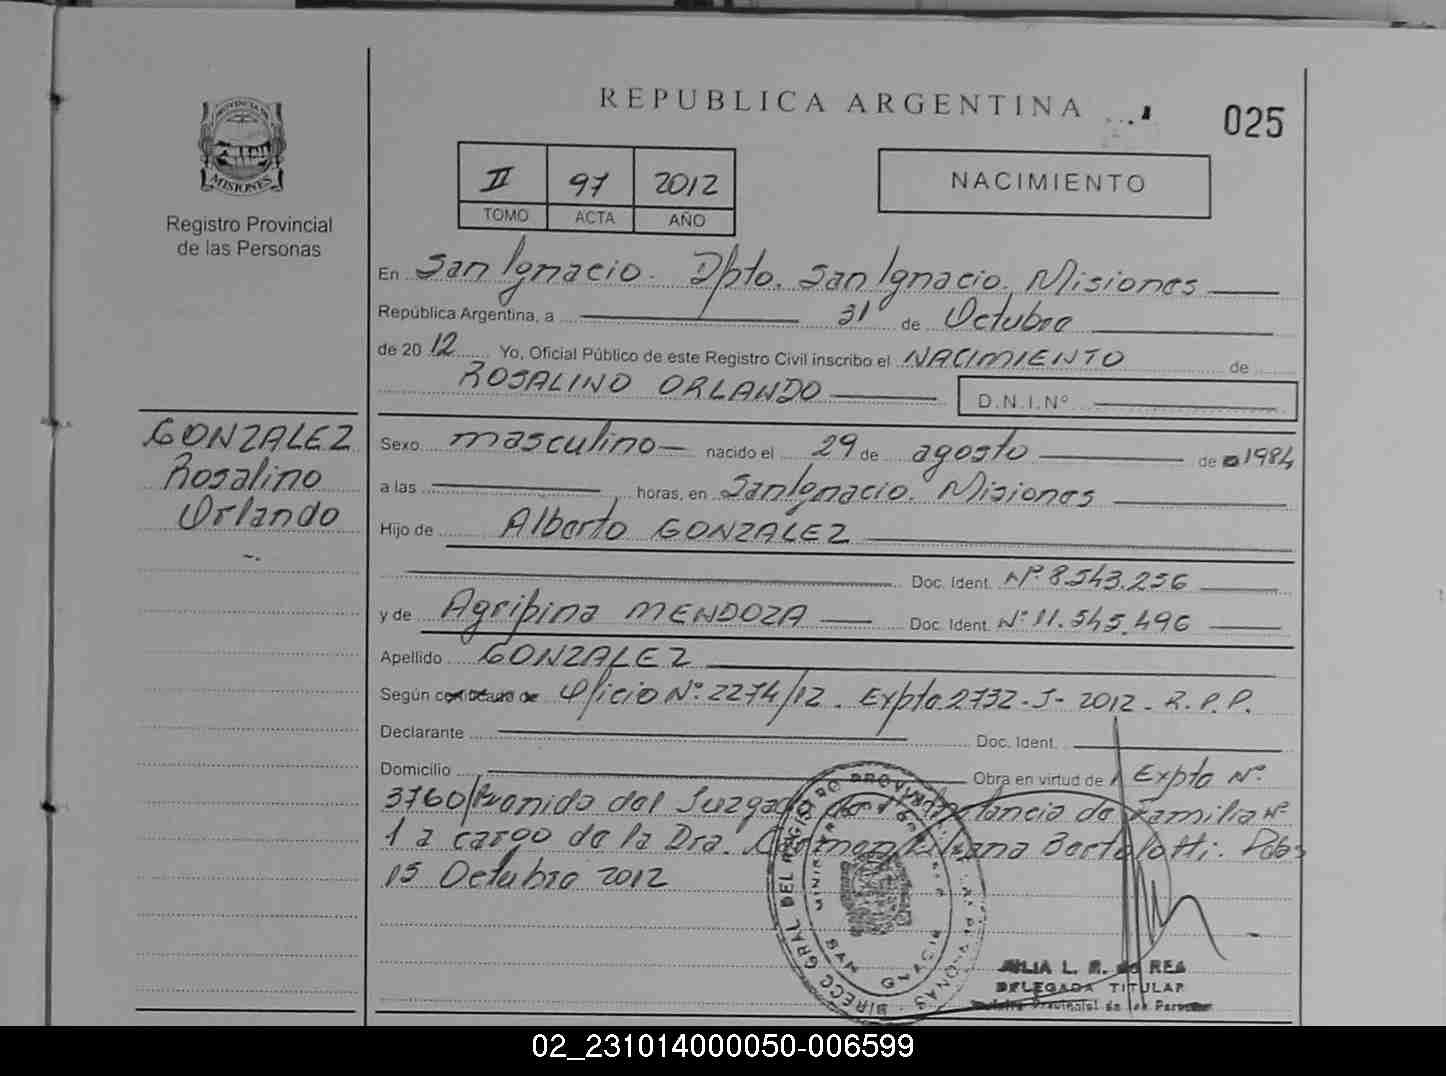 REPUBLICA ARGENTINA
025
PROVINCIA DE
MISIONES
Registro Provincial
de las Personas
II 97 2012
TOMO ACTA AÑO
NACIMIENTO
En San Ignacio. Dpto. San Ignacio. Misiones
República Argentina, a 31 de Octubre
de 2012 Yo, Oficial Público de este Registro Civil inscribo el NACIMIENTO de
ROSALINO ORLANDO D.N.I.Nº
GONZALEZ
Rosalino
Orlando
Sexo masculino nacido el 29 de agosto de 1984
a las horas, en San Ignacio. Misiones
Hijo de Alberto GONZALEZ
Doc. Ident. Nº 8.543.256
y de Agripina MENDOZA Doc. Ident. Nº 11.545.496
Apellido GONZALEZ
Según certificado de Oficio Nº 2274/12. Expto. 2732-J-2012. R.P.P.
Declarante Doc. Ident.
Domicilio Obra en virtud de Expto Nº
3760/ del Juzgado de Instancia de Familia Nº
1 a cargo de la Dra. Bertolotti. Pdas
15 Octubre 2012
DIRECC GRAL DEL REGISTRO PROVINCIAL DE LAS PERSONAS
JULIA L. R. de REA
DELEGADA TITULAR
Registro Provincial de las Personas
02_231014000050-006599